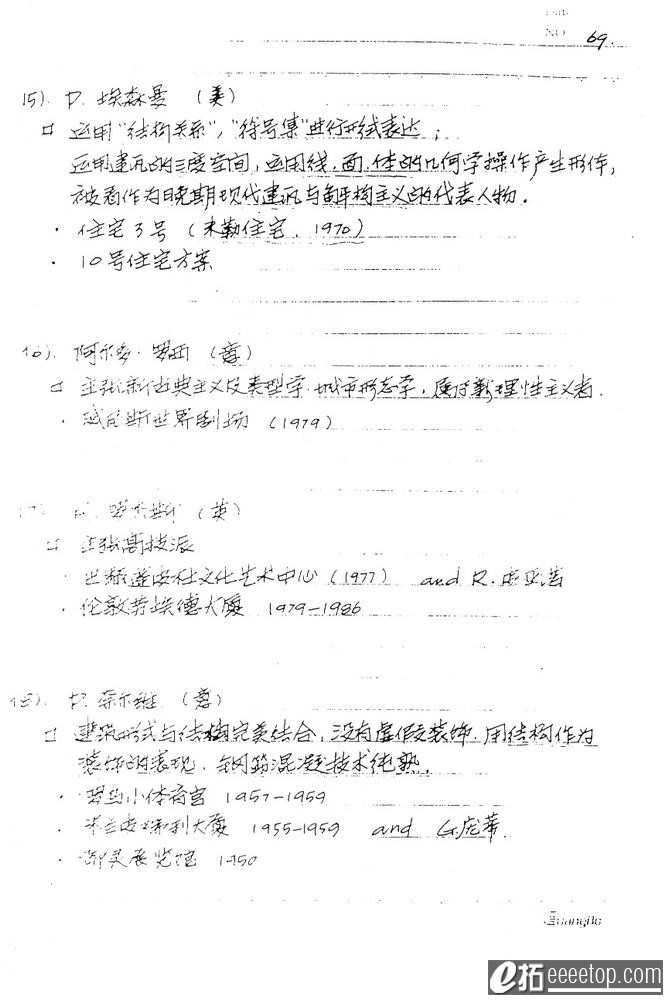 NO 69.
15). P. 埃森曼 (美)
□ 运用"结构关系","符号集"进行形式表达;
运用建筑的三度空间,运用线.面.体的几何学操作产生形体,
被看作为晚期现代建筑与解构主义的代表人物.
· 住宅3号 (米勒住宅. 1970)
· 10号住宅方案
16). 阿尔多·罗西 (意)
□ 主张新古典主义及类型学.城市形态学,属于新理性主义者.
· 威尼斯世界剧场 (1979)
罗杰斯 (英)
□ 主张高技派
· 巴黎蓬皮杜文化艺术中心 (1977) and R.皮亚诺
· 伦敦劳埃德大厦 1979-1986
18). P. 奈尔维 (意)
□ 建筑形式与结构完美结合,没有虚假装饰.用结构作为
装饰的表现.钢筋混凝技术纯熟.
· 罗马小体育宫 1957-1959
· 米兰皮瑞利大厦 1955-1959 and G.庞蒂
· 都灵展览馆 1950
Guangbo
e拓 eeeetop.com